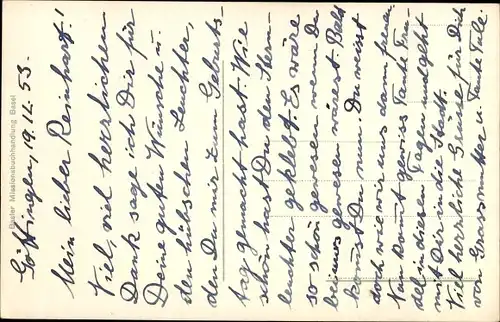 Basler Missionsbuchhandlung, Basel
Göttingen, 19.12.53.
Mein lieber Reinhart!
Viel, viel herrlichen
Dank sage ich Dir für
Deine guten Wünsche u.
den hübschen Leuchter,
den Du mir zum Geburts-
tag gemacht hast. Wie
schön hast Du den Stern-
leuchter geklebt. Es wäre
so schön gewesen wenn Du
bei uns gewesen wärest. Bald
kommst Du nun. Du weisst
doch wie wir uns dann freuen.
Nun kommt gewiss Tante Tru-
del in diesen Tagen und geht
mit Dir in die Stadt.
Viel herrliche Grüsse für Dich
von Grossmutter u. Tante Tule.